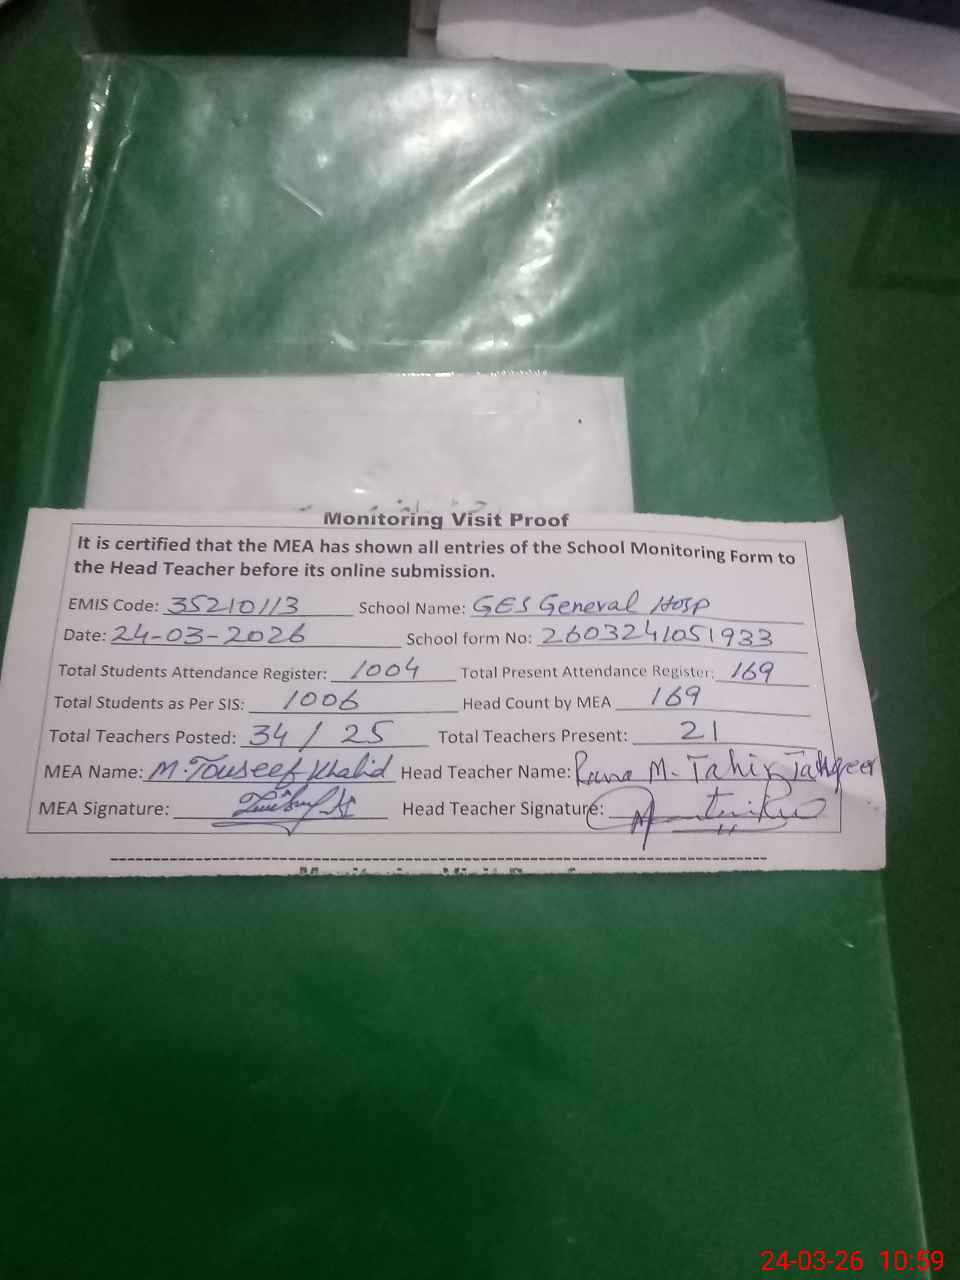 Monitoring Visit Proof
It is certified that the MEA has shown all entries of the School Monitoring Form to
the Head Teacher before its online submission.
EMIS Code: 35210113 School Name: GES General Hosp
Date: 24-03-2026 School form No: 2603241051933
Total Students Attendance Register: 1004 Total Present Attendance Register: 169
Total Students as Per SIS: 1006 Head Count by MEA 169
Total Teachers Posted: 34 / 25 Total Teachers Present: 21
MEA Name: M. Touseef Khalid Head Teacher Name: Rana M. Tahir
MEA Signature: Head Teacher Signature:
Monitoring Visit Proof
24-03-26 10:59